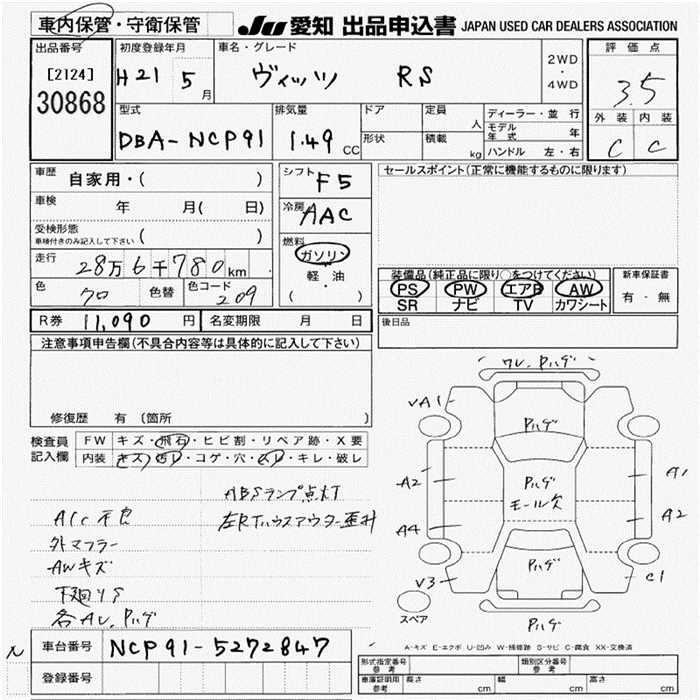 車内保管・守衛保管
JU 愛知 出品申込書 JAPAN USED CAR DEALERS ASSOCIATION
出品番号 初度登録年月 車名・グレード 評価点
[2124] H21 5月 ヴィッツ RS 2WD・4WD 3.5
30868
型式 排気量 ドア 定員 ディーラー・並行 外装 内装
DBA-NCP91 1.49 CC 人 モデル年式 年 C C
形状 積載 kg ハンドル 左・右
車歴 自家用・( ) シフト F5 セールスポイント(正常に機能するものに限ります)
車検 年 月( 日) 冷房 AAC
受検形態 ( )
車検付きのみ記入して下さい
燃料 ガソリン 軽・油 ( ・ )
走行 28万6千780km
色 クロ 色替 色コード 209
装備品(純正品に限り○をつけてください) 新車保証書
PS PW エアB AW 有・無
SR ナビ TV カワシート
R券 11,090円 名変期限 月 日 後日品
注意事項申告欄(不具合内容等は具体的に記入して下さい)
修復歴 有(箇所
検査員 FW キズ・飛石・ヒビ割・リペア跡・X要
記入欄 内装 キズ・汚レ・コゲ・穴・スレ・キレ・破レ
ABSランプ点灯
A/C不良
外マフラー
AWキズ
下廻りS
ワレ、Pハゲ
VA1
Pハゲ
A2
Pハゲ
モール欠
A1
A4
A2
V3
Pハゲ
C1
スペア
Pハゲ
A-キズ E-エクボ U-凹み W-補修跡 S-サビ C-腐食 XX-交換済
車台番号 NCP91-5272847
登録番号
形式指定番号 参考 類別区分番号 参考
車庫証明用 参考 長さ cm 幅 cm 高さ cm